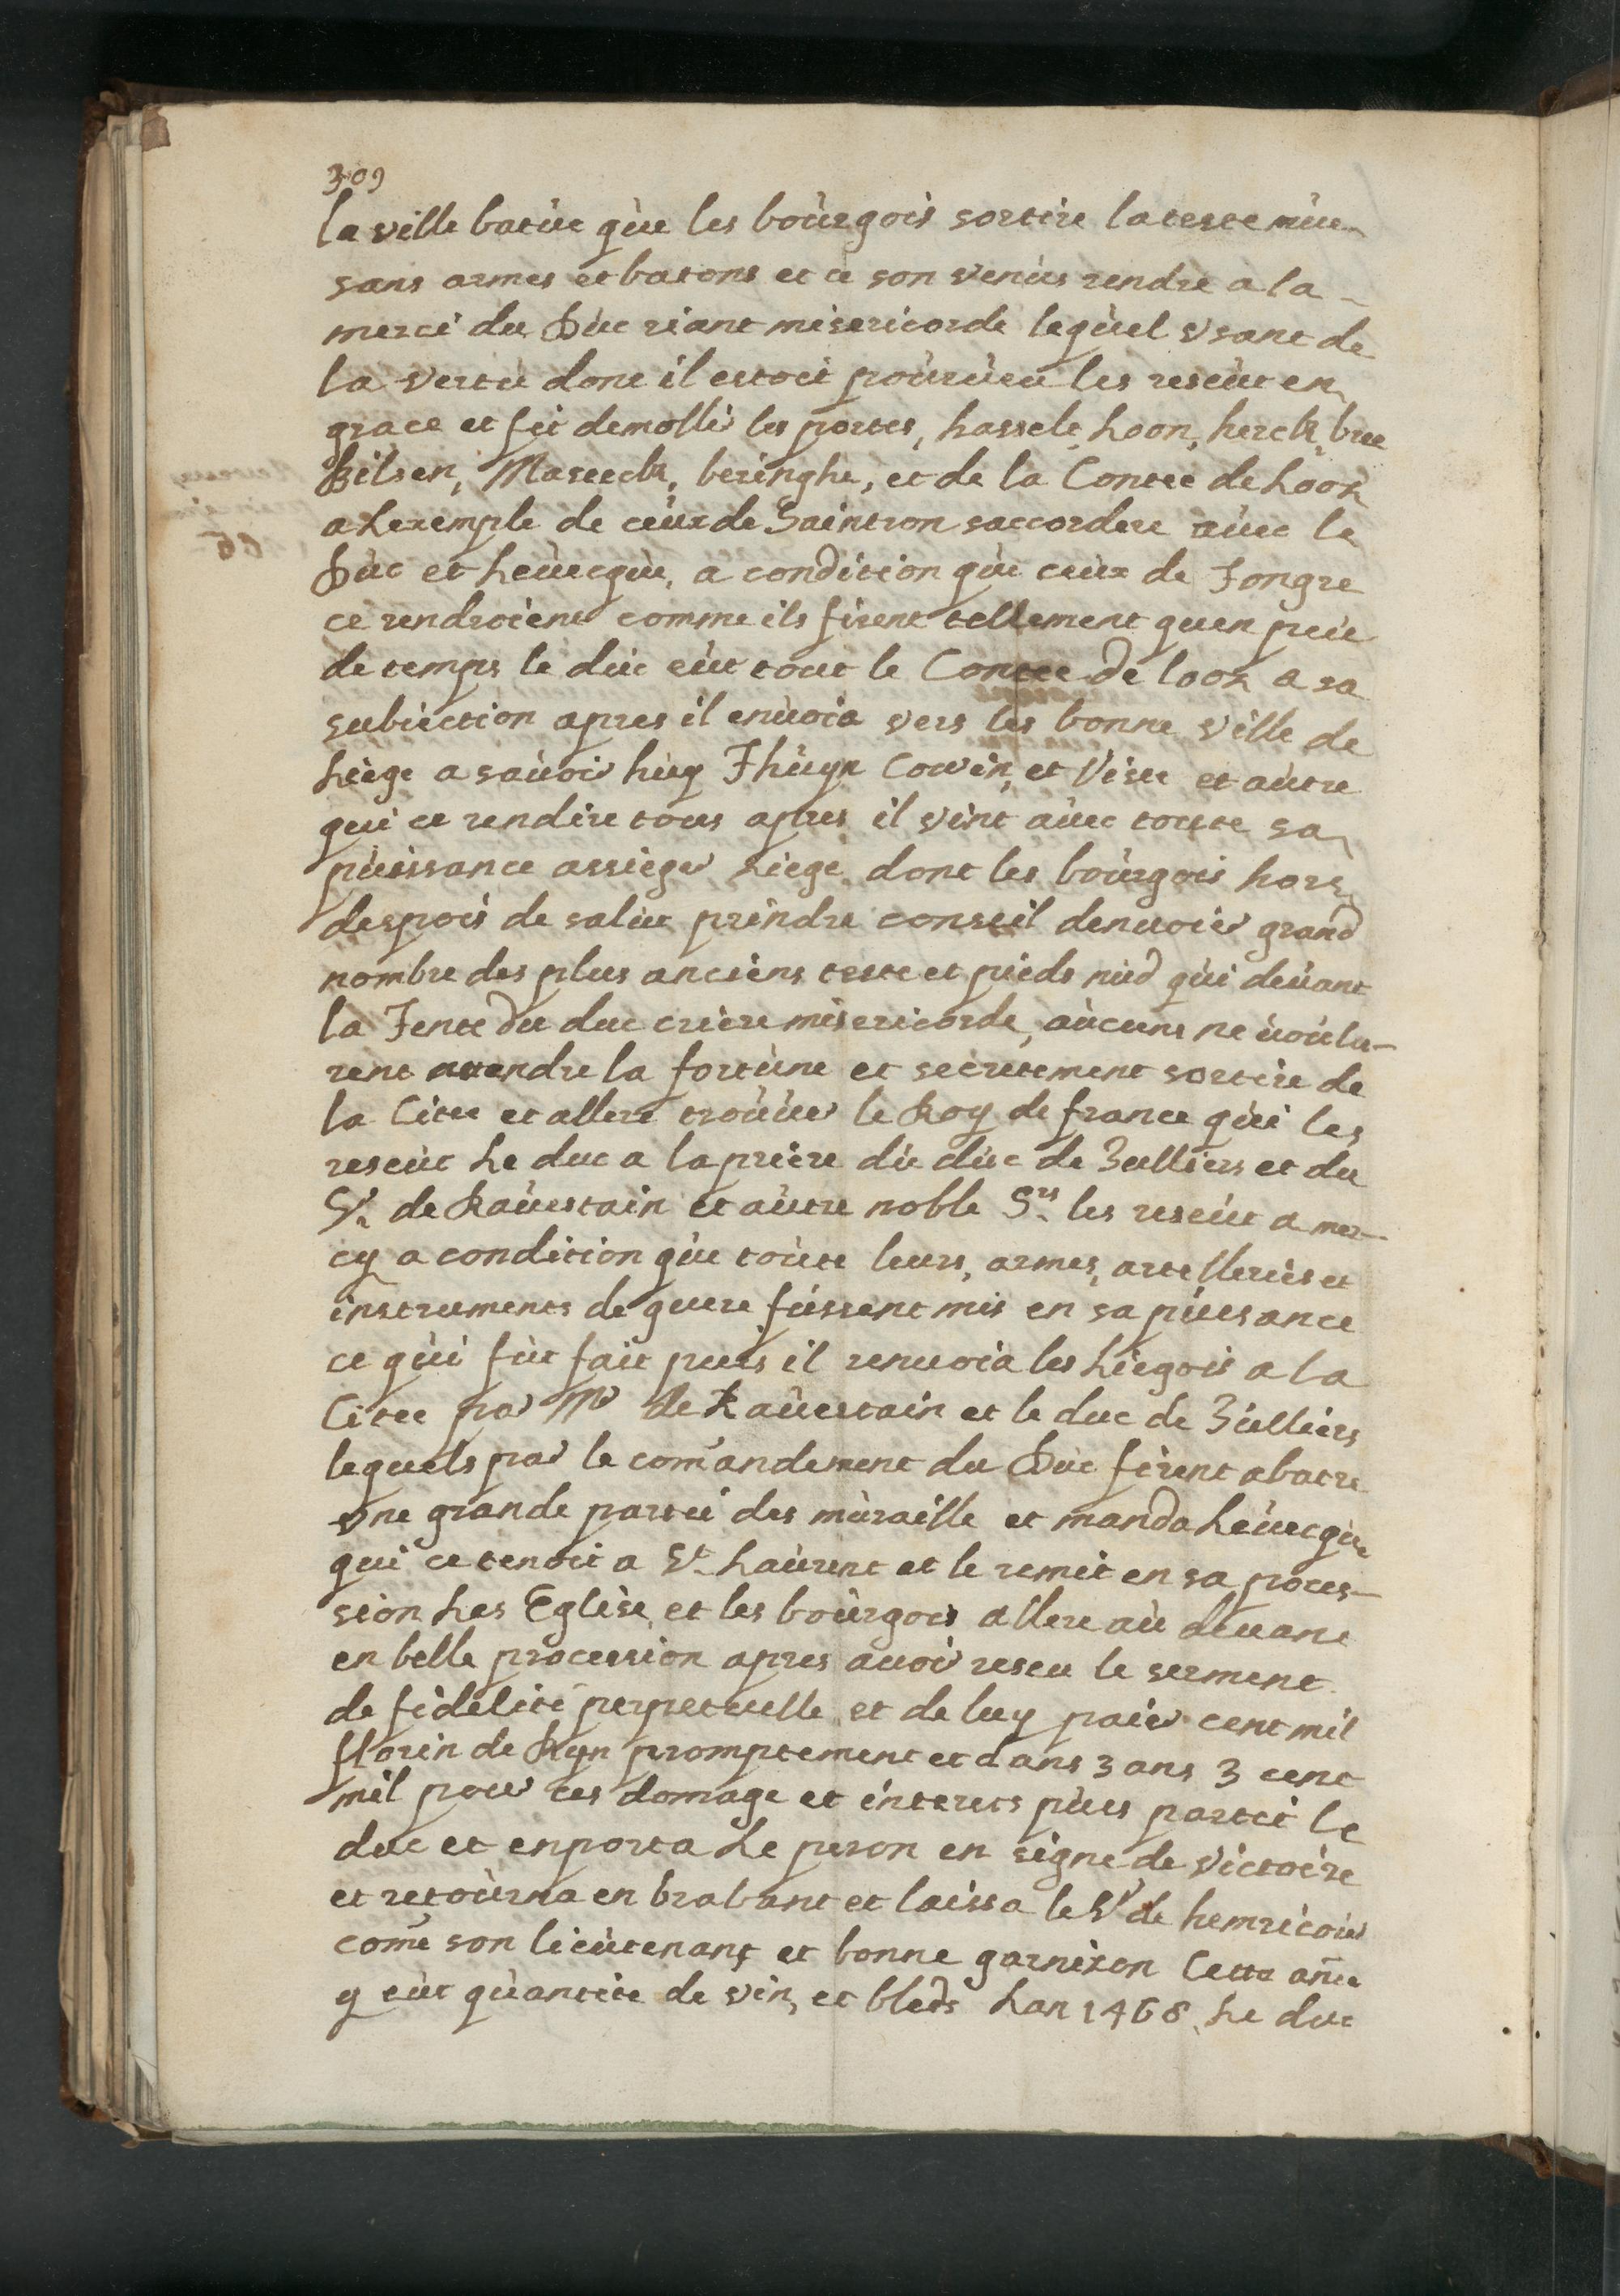 309
la ville batùe qùe les boùrgois sortire la teste nùe
sans armes et batons et ce son venùs rendre a la
merci du Dùc riant misericorde leqùel vsant de
la vertù dont il estoit poùrùeu les reseùt en
grace et fit demollir les portes, hasselt, Loon, herck, bree
Bilsen, Maseeck, beringhe, et de la Contée de Looz
a Lexemple de ceùx de Saintron saccordere aùec le
Dùc et Leùecqùe, a condition qùe ceùx de Tongre
ce rendroient comme ils firent tellement quen peù
de temps le dùc eùt tout le Contee de looz a sa
subiection apres il enùoia vers les bonne ville de
Liège a saùoir hùy Thùyn Couvin, et Visee et aùtre
qui ce rendire tous apres il vint aùec toute sa
pùissance assieger Liege dont les boùrgois hors
despois de salùt prindre conseil denuoier grand
nombre des plus anciens teste et pieds nùd qùi deùant
la Tente du duc crière misericorde, aùcuns ne ùoùlu-
rent attendre la fortùne et secretement sortire de
la Citee et allere troùùer le Roy de france qùi les
reseùt Le duc a la prière dù dùc de Julliers et du
Sr de Raùestain et aùtre noble Srs les reseùt a mer-
cy a condition qùe toùte leurs, armes, artelleries et
instruments de guere fùssent mis en sa pùissance
ce qùi fùt fait puis il renuoia les Liegois a la
Citee par Mr de Raùestain et le duc de Jùlliers
lequels par le comandement du Dùc firent abatre
vne grande partie des mùraille et manda Leùecqùe
qui ce tenoit a St Laùrent et le remit en sa proces-
sion Les Eglise, et les boùrgois allere aù deuant
en belle procession apres auoir reseu le serment
de fidelité perpetuelle et de luy paier cent mil
florin de Ryn promptement et dans 3 ans 3 cent
mil pour ces domage et interets pùis partit le
duc et enporta Le peron en signe de victoire
et retoùrna en brabant et laissa le Sr de hemricoùr
come son lieùtenant et bonne garnixon Cette añee
y eùt qùantite de vin, et bleds Lan 1468 Le duc